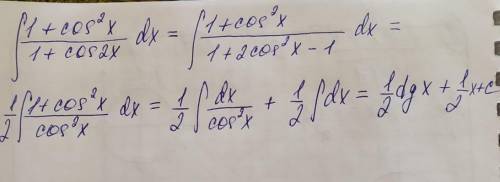 ∫ (1 + cos²x)/(1 + cos2x) dx = ∫ (1 + cos²x)/(1 + 2cos²x − 1) dx =
1/2 ∫ (1 + cos²x)/(cos²x) dx = 1/2 ∫ dx/(cos²x) + 1/2 ∫ dx = 1/2 tg x + 1/2 x + c